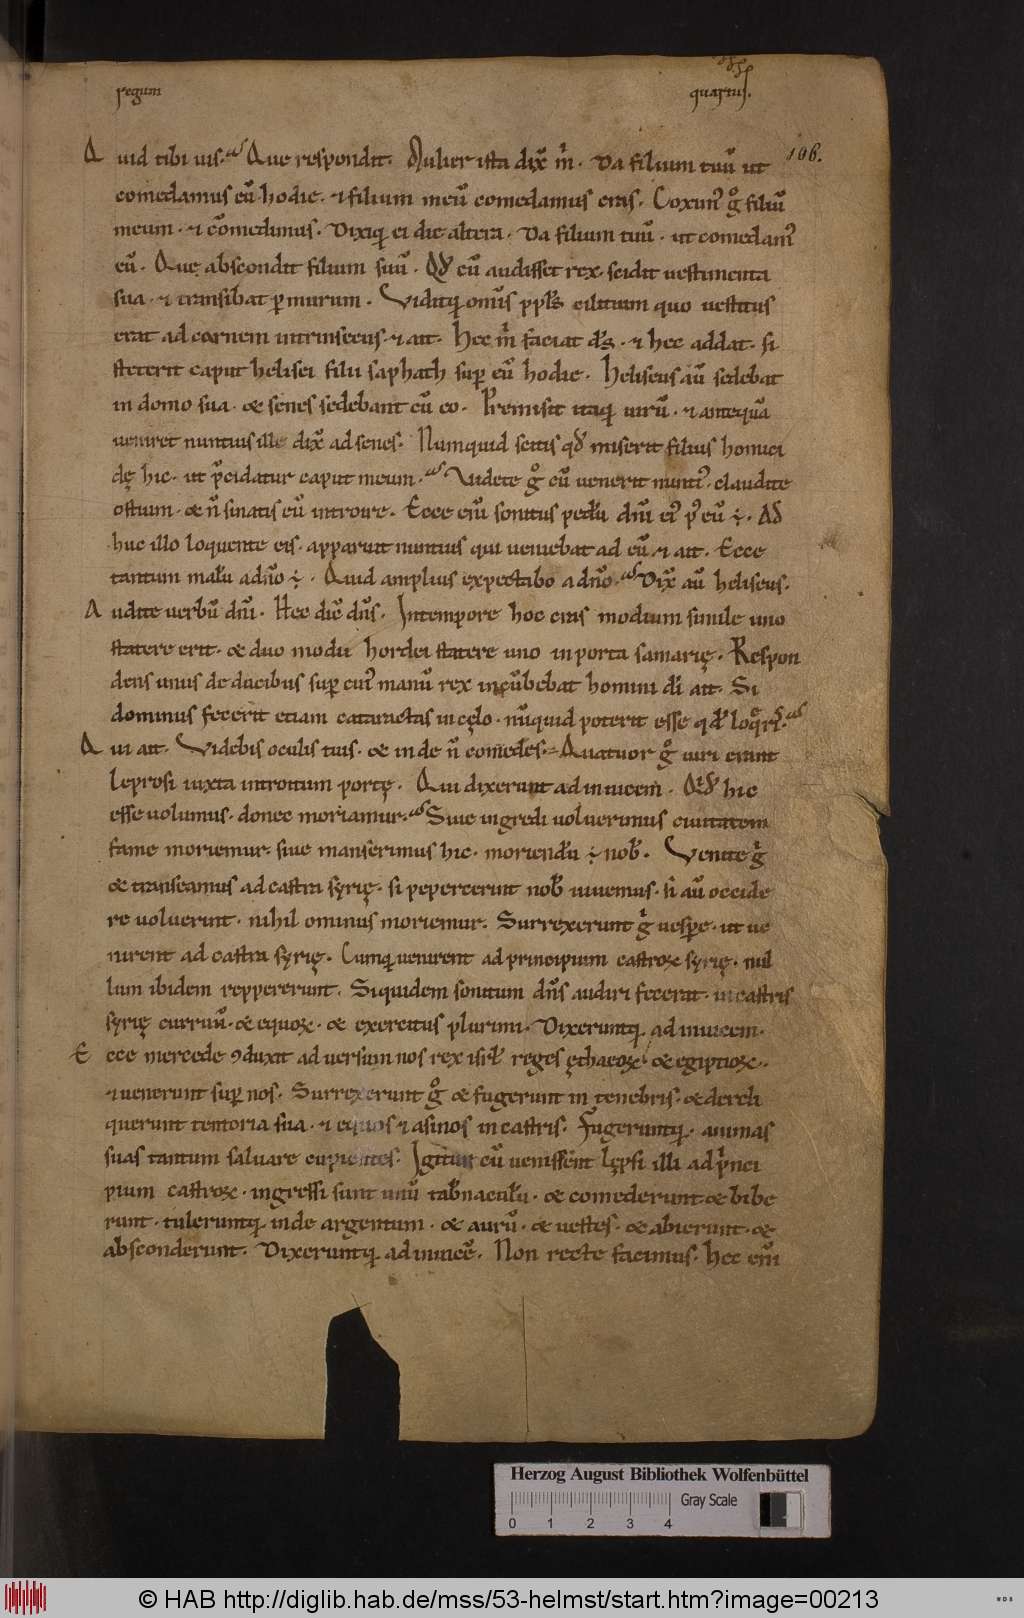 regum quartus.
106.
Quid tibi uis. Que respondit. Mulier ista dix̄ m̄. Da filium tuū ut
comedamus eū hodie. & filium meū comedamus cras. Coxim' g° filiū
meum. & cōmedimus. Dixiq; ei die altera. Da filium tuū. ut comedam'
eū. Que abscondit filium suū. Qd̄ cū audisset rex. scidit uestimenta
sua. & transibat p murum. Viditq; omīs ppl's cilitium quo uestitus
erat ad carnem intrinsecus. & ait. Hec m̄ faciat ds̄. & hec addat. si
steterit caput helisei filii saphath sup eū hodie. Heliseus aū sedebat
in domo sua. & senes sedebant cū eo. Premisit itaq; uirū. & anteq̄uā
ueniret nuntius ille dix̄ ad senes. Numquid scitis qd̄ miserit filius homici
dę hic. ut p̄cidatur caput meum. Videte g° cū uenerit nunti'. claudite
ostium. & n̄ sinatis eū introire. Ecce enī sonitus pedū dnī ei' p' eū ÷. Ad
huc illo loquente eis. apparuit nuntius qui ueniebat ad eū. & ait. Ecce
tantum malū a dn̄o ÷. Quid amplius expectabo a dn̄o. Dix̄ aū heliseus.
Audite uerbū dnī. Hec dic̄ dn̄s. In tempore hoc cras modium simile uno
statere erit. & duo modii hordei statere uno in porta samarię. Respon
dens unus de ducibus sup cui' manū rex incūbebat homini dī ait. Si
dominus fecerit etiam cataractas in cęlo. nūquid poterit esse qd̄ loq̄ris.
Qui ait. Videbis oculis tuis. & inde n̄ comedes. Quatuor g° uiri erant
leprosi iuxta introitum portę. Qui dixerunt ad inuicem. Qid̄ hic
esse uolumus. donec moriamur. Siue ingredi uoluerimus ciuitatem
fame moriemur. siue manserimus hic. moriendū ÷ nob̄. Venite g'
& transeamus ad castra syrię. si pepercerint nob̄ uiuemus. si aū occide
re uoluerint. nihil ominus moriemur. Surrexerunt g' uespe. ut ue
nirent ad castra syrię. Cumq; uenirent ad principium castroꝝ syrię. nul
lum ibidem reppererunt. Siquidem sonitum dn̄s audiri fecerat. in castris
syrię curruū. & equoꝝ. & exercitus plurimi. Dixeruntq; ad inuicem.
Ecce mercede ꝯduxit aduersum nos rex isrl̄ reges ęthaeoꝝ & egiptioꝝ.
& uenerunt sup nos. Surrexerunt g° & fugerunt in tenebris. & dereli
querunt tentoria sua. & equos & asinos in castris. Fugeruntq; animas
suas tantum saluare cupientes. Igitur cū uenissent lępsi illi ad p'nci
pium castroꝝ. ingressi sunt unū tab̄naculū. & comederunt & bibe
runt. tuleruntq; inde argentum. & aurū. & uestes. & abierunt. &
absconderunt. Dixeruntq; ad inuicē. Non recte facimus. Hec enī
Herzog August Bibliothek Wolfenbüttel
Gray Scale
0 1 2 3 4
© HAB http://diglib.hab.de/mss/53-helmst/start.htm?image=00213